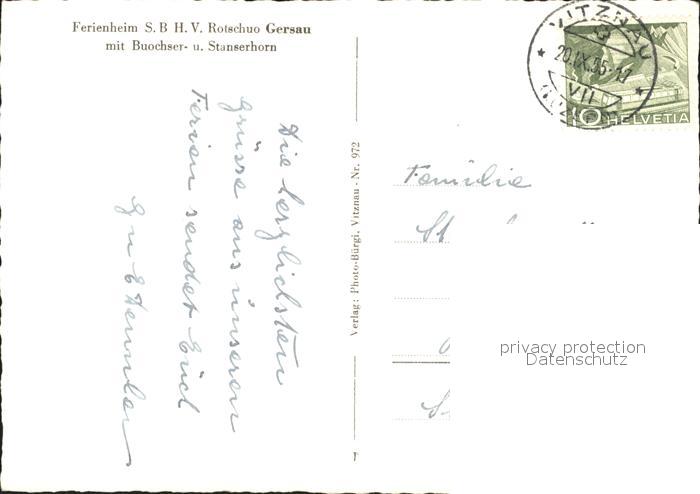 Ferienheim S. B H. V. Rotschuo Gersau
mit Buochser- u. Stanserhorn
Die herzlichsten
Grüsse aus unseren
Ferien sendet Euch
Verlag: Photo-Bürgi, Vitznau - Nr. 972
VITZNAU
20.IX.55-17
VII
10 HELVETIA
Familie
privacy protection
Datenschutz